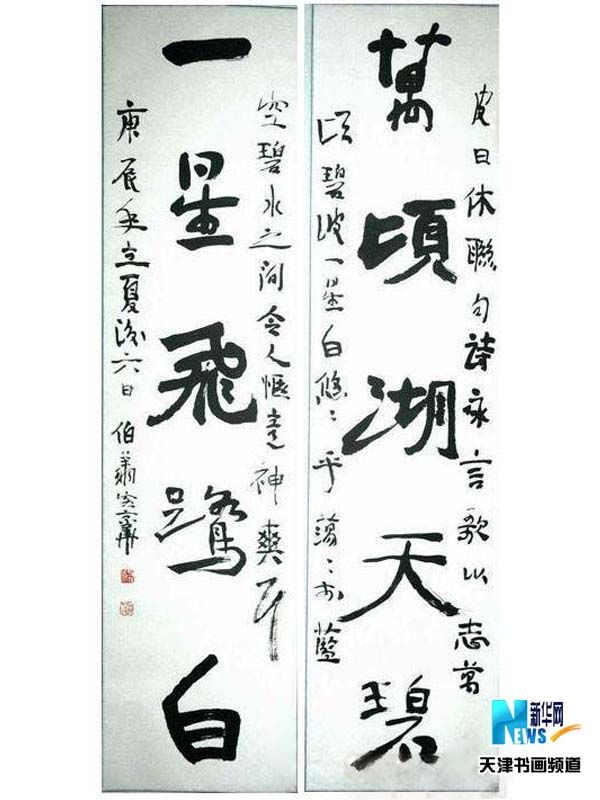 皮日休聯句詩永言歌以志萬
萬頃湖天碧
頃碧波一星白悠々乎蕩々於藍
空碧水之間令人惬意神爽耳
一星飛鷺白
庚辰年立夏後六日 伯
新华网
NEWS
天津书画频道